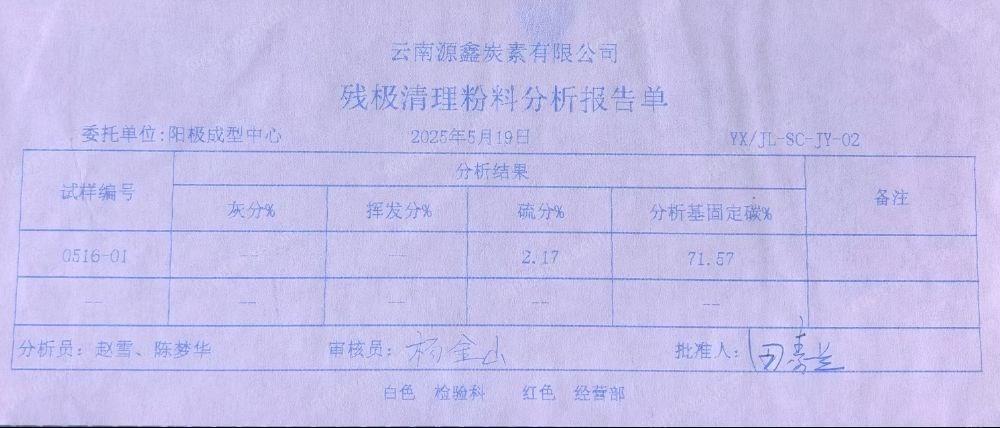 云南源鑫炭素有限公司
残极清理粉料分析报告单
委托单位:阳极成型中心 2025年5月19日 YX/JL-SC-JY-02
试样编号 分析结果 备注
灰分% 挥发分% 硫分% 分析基固定碳%
0516-01 -- -- 2.17 71.57
-- -- -- -- --
分析员：赵雪、陈梦华 审核员：杨金山 批准人：
白色 检验科 红色 经营部